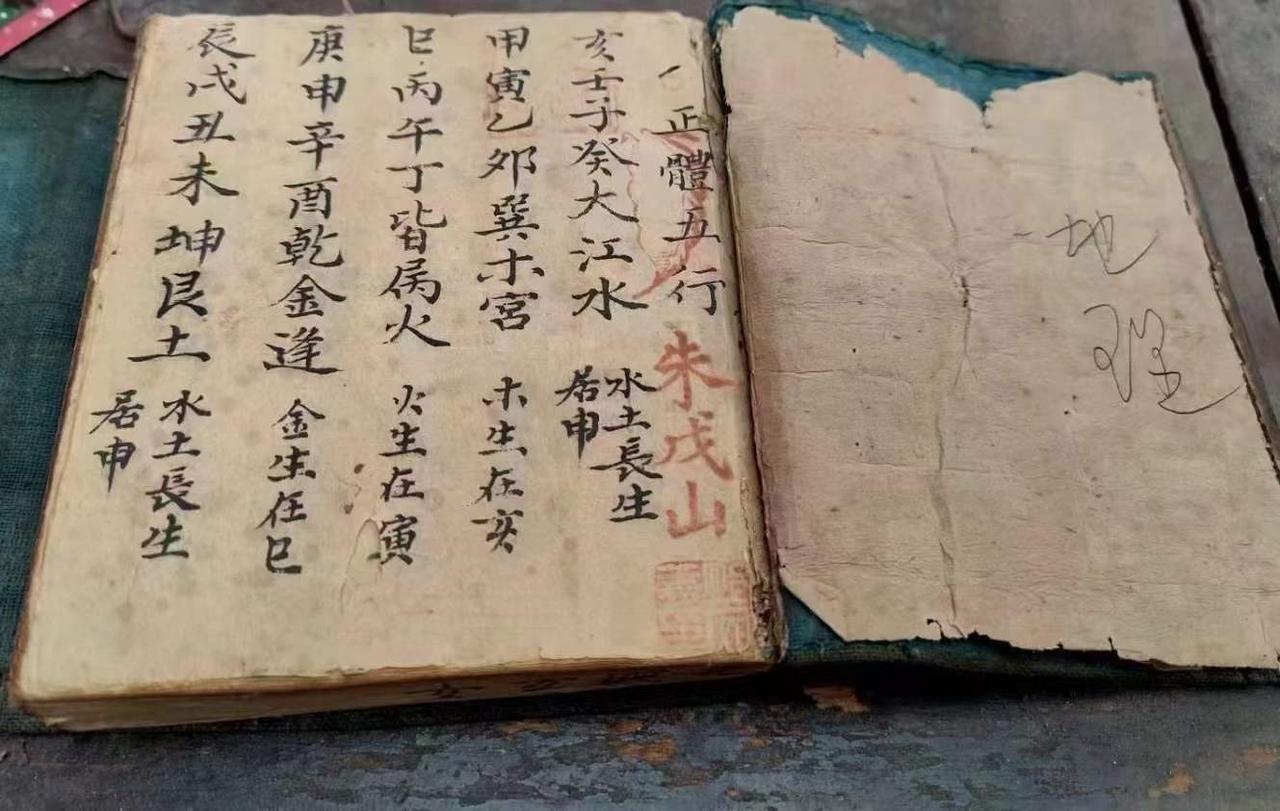 地理
一正體五行
朱戊山
亥壬子癸大江水
水土長生
居申
甲寅乙卯巽木宮
木生在亥
巳丙午丁皆属火
火生在寅
庚申辛酉乾金逢
金生在巳
辰戌丑未坤艮土
水土長生
居申